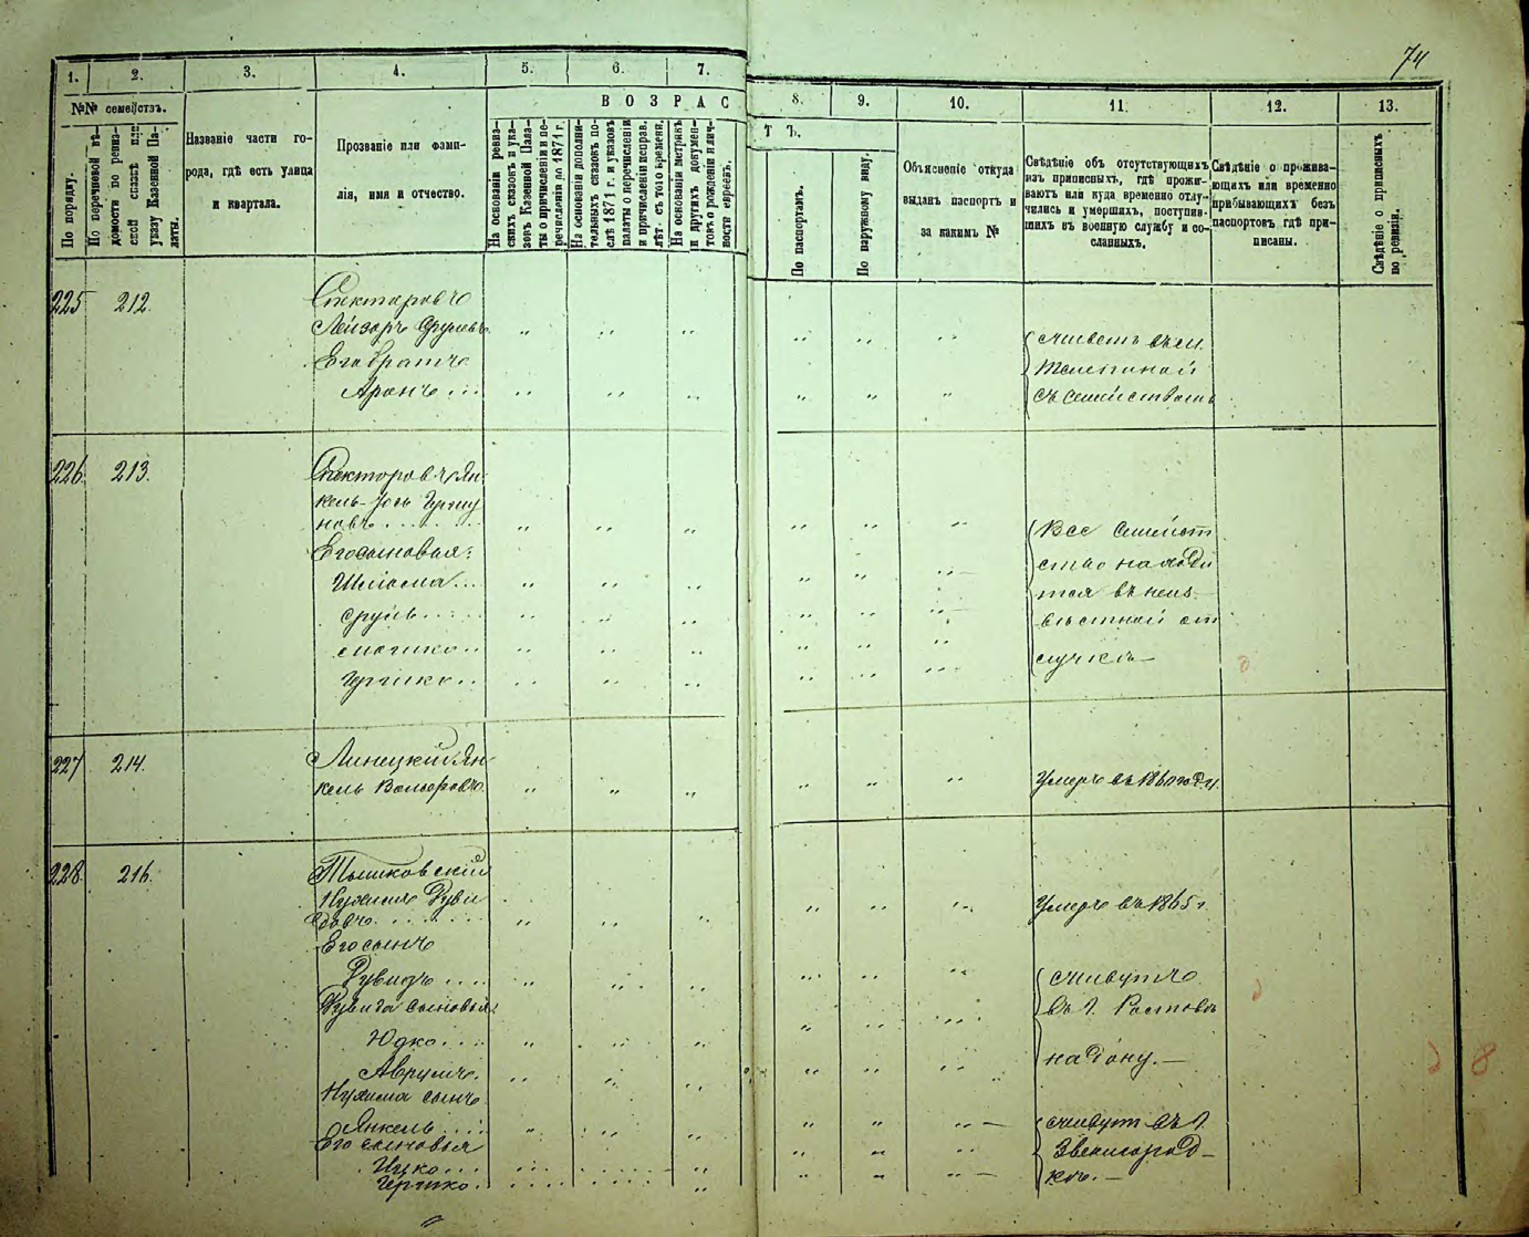 74
1. 2. 3. 4. 5. 6. 7. 8. 9. 10. 11. 12. 13.
№№ семействъ.
По порядку.
По перечневой вѣ-
домости по ревиз-
ской сказкѣ или
указу Казенной Па-
латы.
Названіе части го-
рода, гдѣ есть улица
и квартала.
Прозваніе или фами-
лія, имя и отчество.
ВОЗРАСТЪ.
На основаніи ревиз-
скихъ сказокъ и ука-
зовъ Казенной Пала-
ты о причисленіи и пе-
речисленіи до 1871 г.
На основаніи дополни-
тельныхъ сказокъ по-
слѣ 1871 г. и указовъ
палаты о перечисленіи
и причисленіи исправ.
лѣт. съ того времени.
На основаніи метрикъ
и другихъ докумен-
товъ о рожденіи и лич-
ности евреевъ.
По паспортамъ.
По наружному виду.
Объясненіе откуда
выданъ паспортъ и
за какимъ №
Свѣдѣніе объ отсутствующихъ
изъ приписныхъ, гдѣ прожи-
ваютъ или куда временно отлу-
чились и умершихъ, поступив-
шихъ въ военную службу и со-
сланныхъ.
Свѣдѣніе о прожива-
ющихъ или временно
прибывающихъ безъ
паспортовъ гдѣ при-
писаны.
Свѣдѣніе о приписныхъ
по ревизіи.
225 212.
Спекторовъ
Лейзоръ Срулевъ
Его братъ
Аронъ
живетъ въ м.
съ семействомъ
226. 213.
Спекторовъ Ян-
кель-Јось Гершу
новъ
Его сыновья:
Шліома
Сруль
Мошко
Гершко
Все семейст
ство находи
тся въ неиз-
вѣстной от
лучкѣ
227 214.
Линецкій Ян-
кель Вольфовъ
Умеръ въ 1860 году.
228. 216.
Тышковскій
Нухимъ Руви
довъ
Его сынъ
Рувидъ
Рувида сыновья:
Юдко
Аврумъ.
Нухима сынъ
Янкель
Его сыновья
Ицко
Гершко.
Умеръ въ 1865 г.
живутъ
въ г. Ростовѣ
на Дону.
живут въ г.
Звенигород-
кѣ.
8